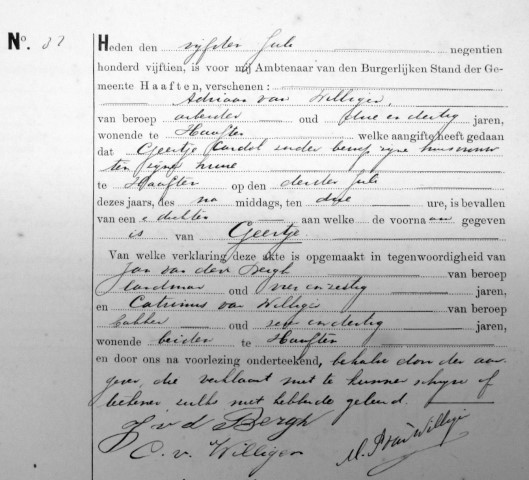 No. 37 Heden den vijfden Juli negentien
honderd vijftien, is voor mij Ambtenaar van den Burgerlijken Stand der Ge-
meente Haaften, verschenen:
Adriaan van Willigen,
van beroep arbeider oud drie en dertig jaren,
wonende te Haaften welke aangifte heeft gedaan
dat Geertje Kardol zonder beroep zijne huisvrouw
ten zijnen huize
te Haaften op den derden Juli
dezes jaars, des na middags, ten drie ure, is bevallen
van een e dochter aan welke de voorna am gegeven
is van Geertje.
Van welke verklaring deze akte is opgemaakt in tegenwoordigheid van
Jan van den Bergh van beroep
landman oud vier en zestig jaren,
en Catrinus van Willigen van beroep
bakker oud en dertig jaren,
wonende beiden te Haaften
en door ons na voorlezing onderteekend, behalve door den aan-
gever, die verklaart niet te kunnen schrijven of
teekenen zulks niet hebbende geleerd.
J. v. d. Bergh
C. v. Willigen van Willigen